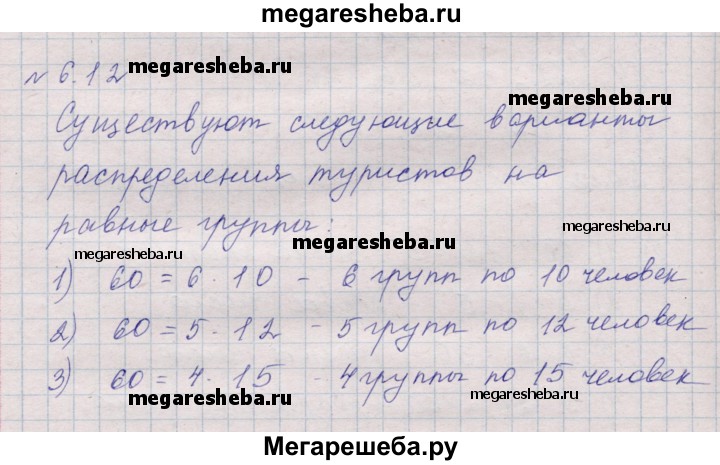 megaresheba.ru
№ 6.12 megaresheba.ru
megaresheba.ru
Существуют следующие варианты
распределения туристов на
равные группы: megaresheba.ru
megaresheba.ru megaresheba.ru
1) 60 = 6 · 10 - 6 групп по 10 человек
2) 60 = 5 · 12 - 5 групп по 12 человек
3) 60 = 4 · 15 - 4 группы по 15 человек
megaresheba.ru megaresheba.ru
Мегарешеба.ру